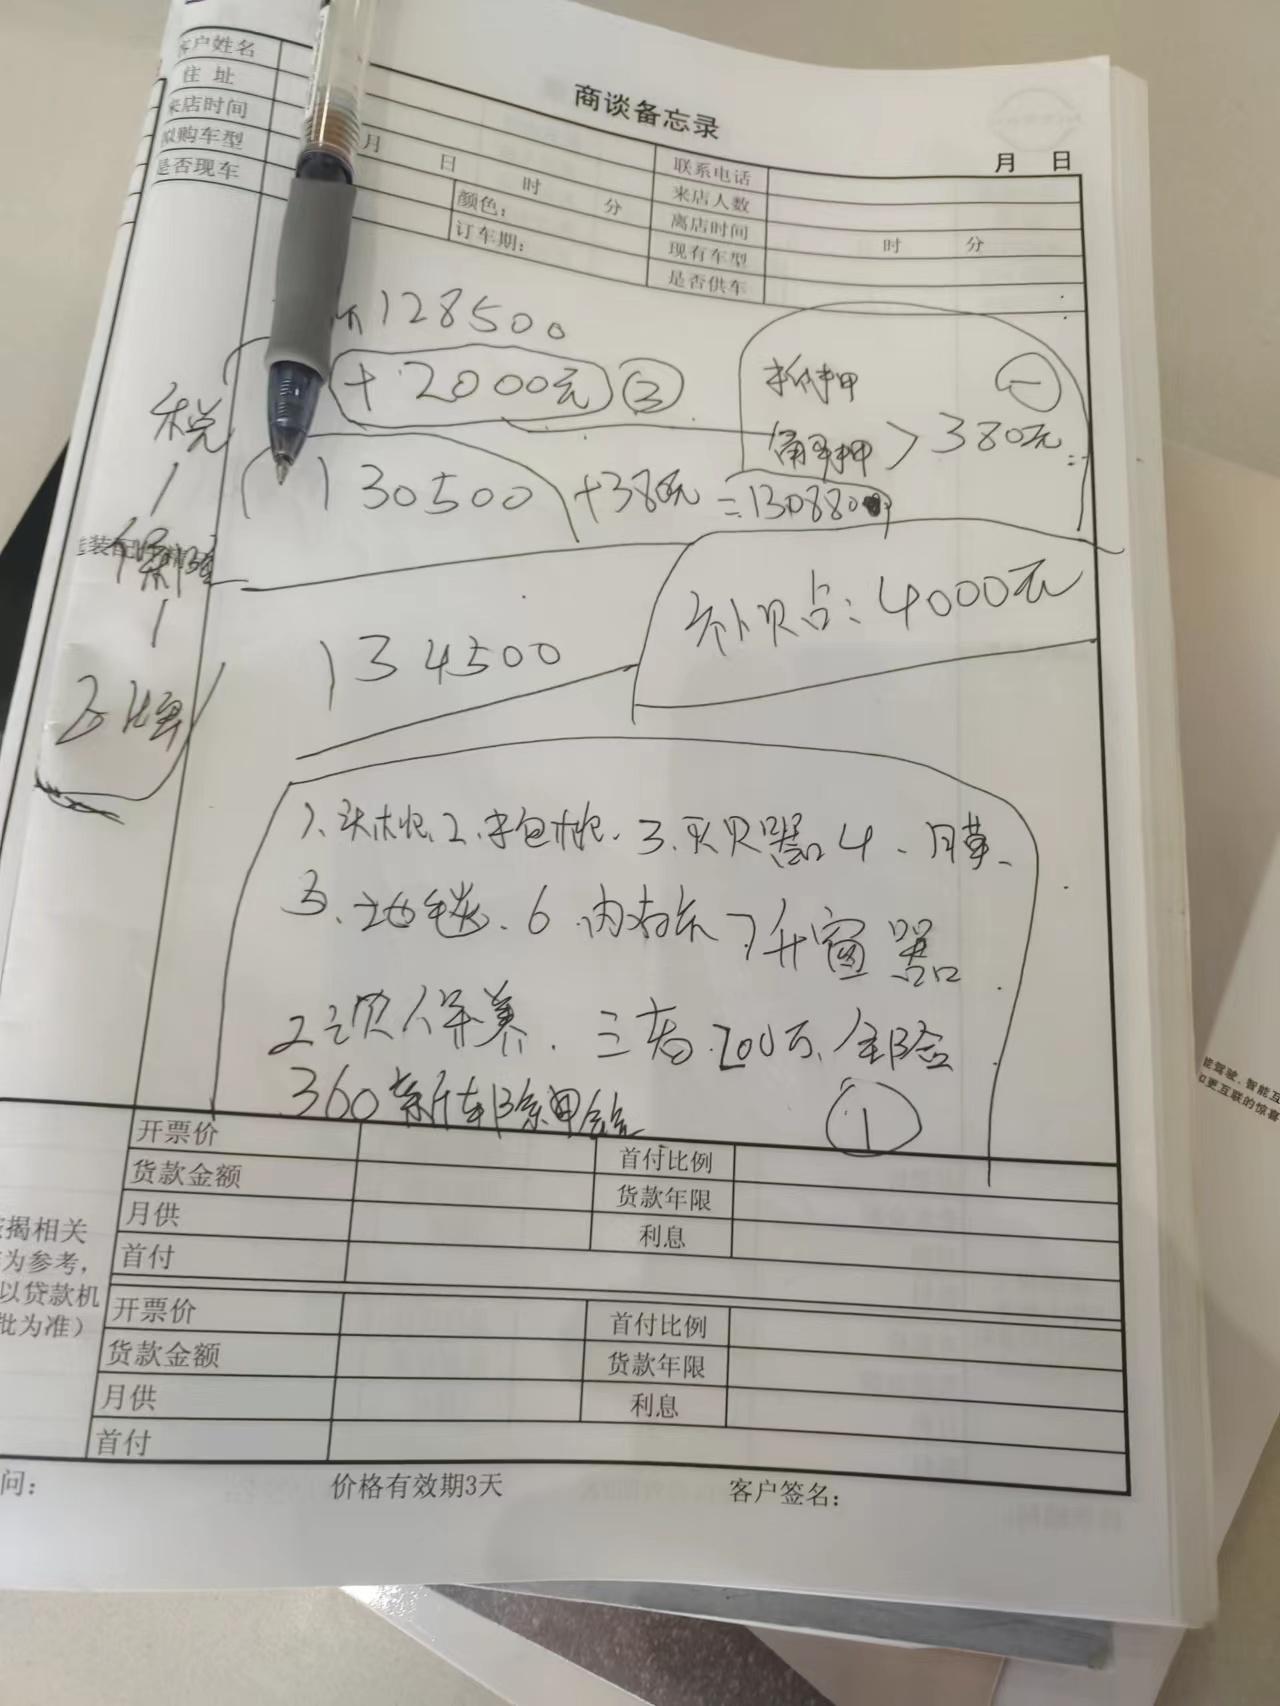 商谈备忘录
月 日
客户姓名
联系电话
住 址
来店人数
来店时间 月 日 时 分
离店时间 时 分
拟购车型 颜色：
现有车型
是否现车 订车期：
是否供车
128500
+2000元 ②
抵押 一
解押 > 380元
税
130500 +380元 = 130880
保险
补贴：4000元
134500
上牌
1、头枕、2、手包枕、3、灭火器 4、膜、
5、地毯、6、内存卡 7升窗器
2次保养、三者200万、全险
360新车除甲醛 ①
开票价 首付比例
货款金额 货款年限
月供 利息
首付
揭相关
为参考，
以贷款机
批为准）
开票价 首付比例
货款金额 货款年限
月供 利息
首付
问：
价格有效期3天
客户签名：
能驾驶、智能互
更互联的惊喜